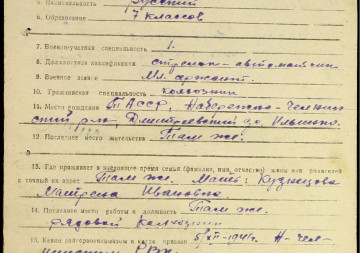 5. Национальность Русский
6. Образование 7 классов
7. Военно-учетная специальность 1.
8. Должностная квалификация стрелок - автоматчик
9. Военное звание Мл. сержант.
10. Гражданская специальность колхозник
11. Место рождения ТАССР, Набережно-Челнин
ский р-н, Дмитриевский
12. Последнее место жительства Там же.
13. Где проживает в настоящее время семья (фамилия, имя, отчество) жены или родителей
и точный их адрес Там же. Мать: Кузнецова
Матрена Ивановна
14. Последнее место работы и должность Там же.
рядовой колхозник
15. Каким райгорвоенкоматом и когда призван XII-1941г. Н-Чел-
нинским РВК.